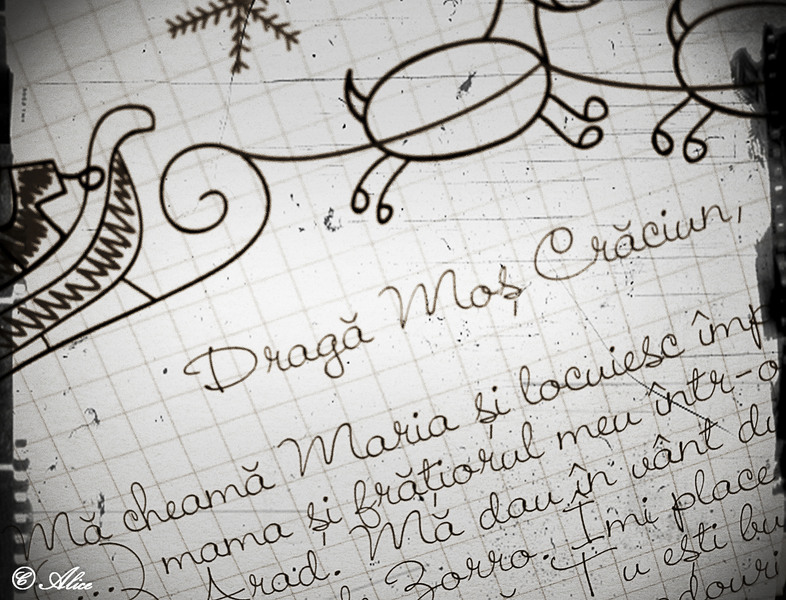 Dragă Moș Crăciun,
Mă cheamă Maria și locuiesc împ
mama și frățiorul meu într-o
Arad. Mă dau în vânt du
Zorro. Îmi place
Tu ești bu
© Alice